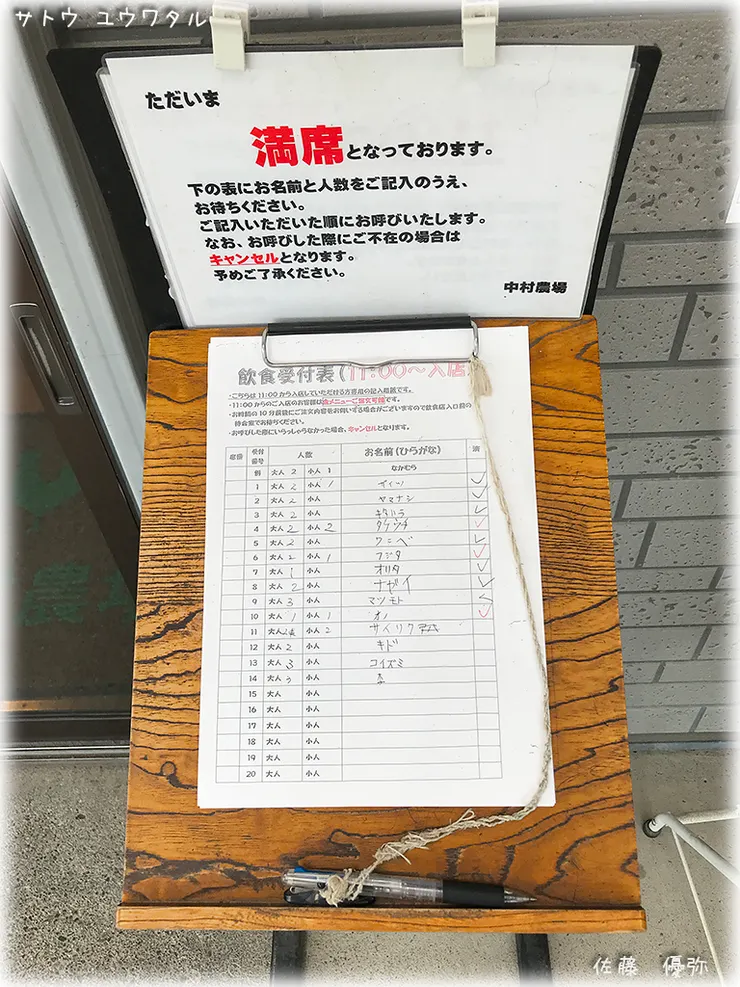 サトウ ユウワタル
ただいま
満席となっております。
下の表にお名前と人数をご記入のうえ、
お待ちください。
ご記入いただいた順にお呼びいたします。
なお、お呼びした際にご不在の場合は
キャンセルとなります。
予めご了承ください。
中村農場
飲食受付表(11:00～入店)
・こちらは11:00から入店していただける方専用の記入用紙です。
・11:00からのご入店のお客様は全メニューご注文可能です。
・お時間の10分前後にご注文内容をお伺いする場合がございますので飲食店入口前の
待合室でお待ちください。
・お呼びした際にいらっしゃらなかった場合、キャンセルとなります。
席番 受付番号 人数 お名前(ひらがな) 済
例 大人 2 小人 1 なかむら
1 大人 2 小人 1
2 大人 2 小人 ヤマナシ
3 大人 2 小人 キタハラ
4 大人 2 小人 2 タケウチ
5 大人 2 小人 ワニベ
6 大人 2 小人 1 フジタ
7 大人 1 小人 オリタ
8 大人 2 小人 ナガイ
9 大人 3 小人 マツモト
10 大人 1 小人 1 オノ
11 大人 小人 2 サイリク
12 大人 2 小人 キド
13 大人 3 小人 コイズミ
14 大人 小人
15 大人 小人
16 大人 小人
17 大人 小人
18 大人 小人
19 大人 小人
20 大人 小人
佐藤 優弥